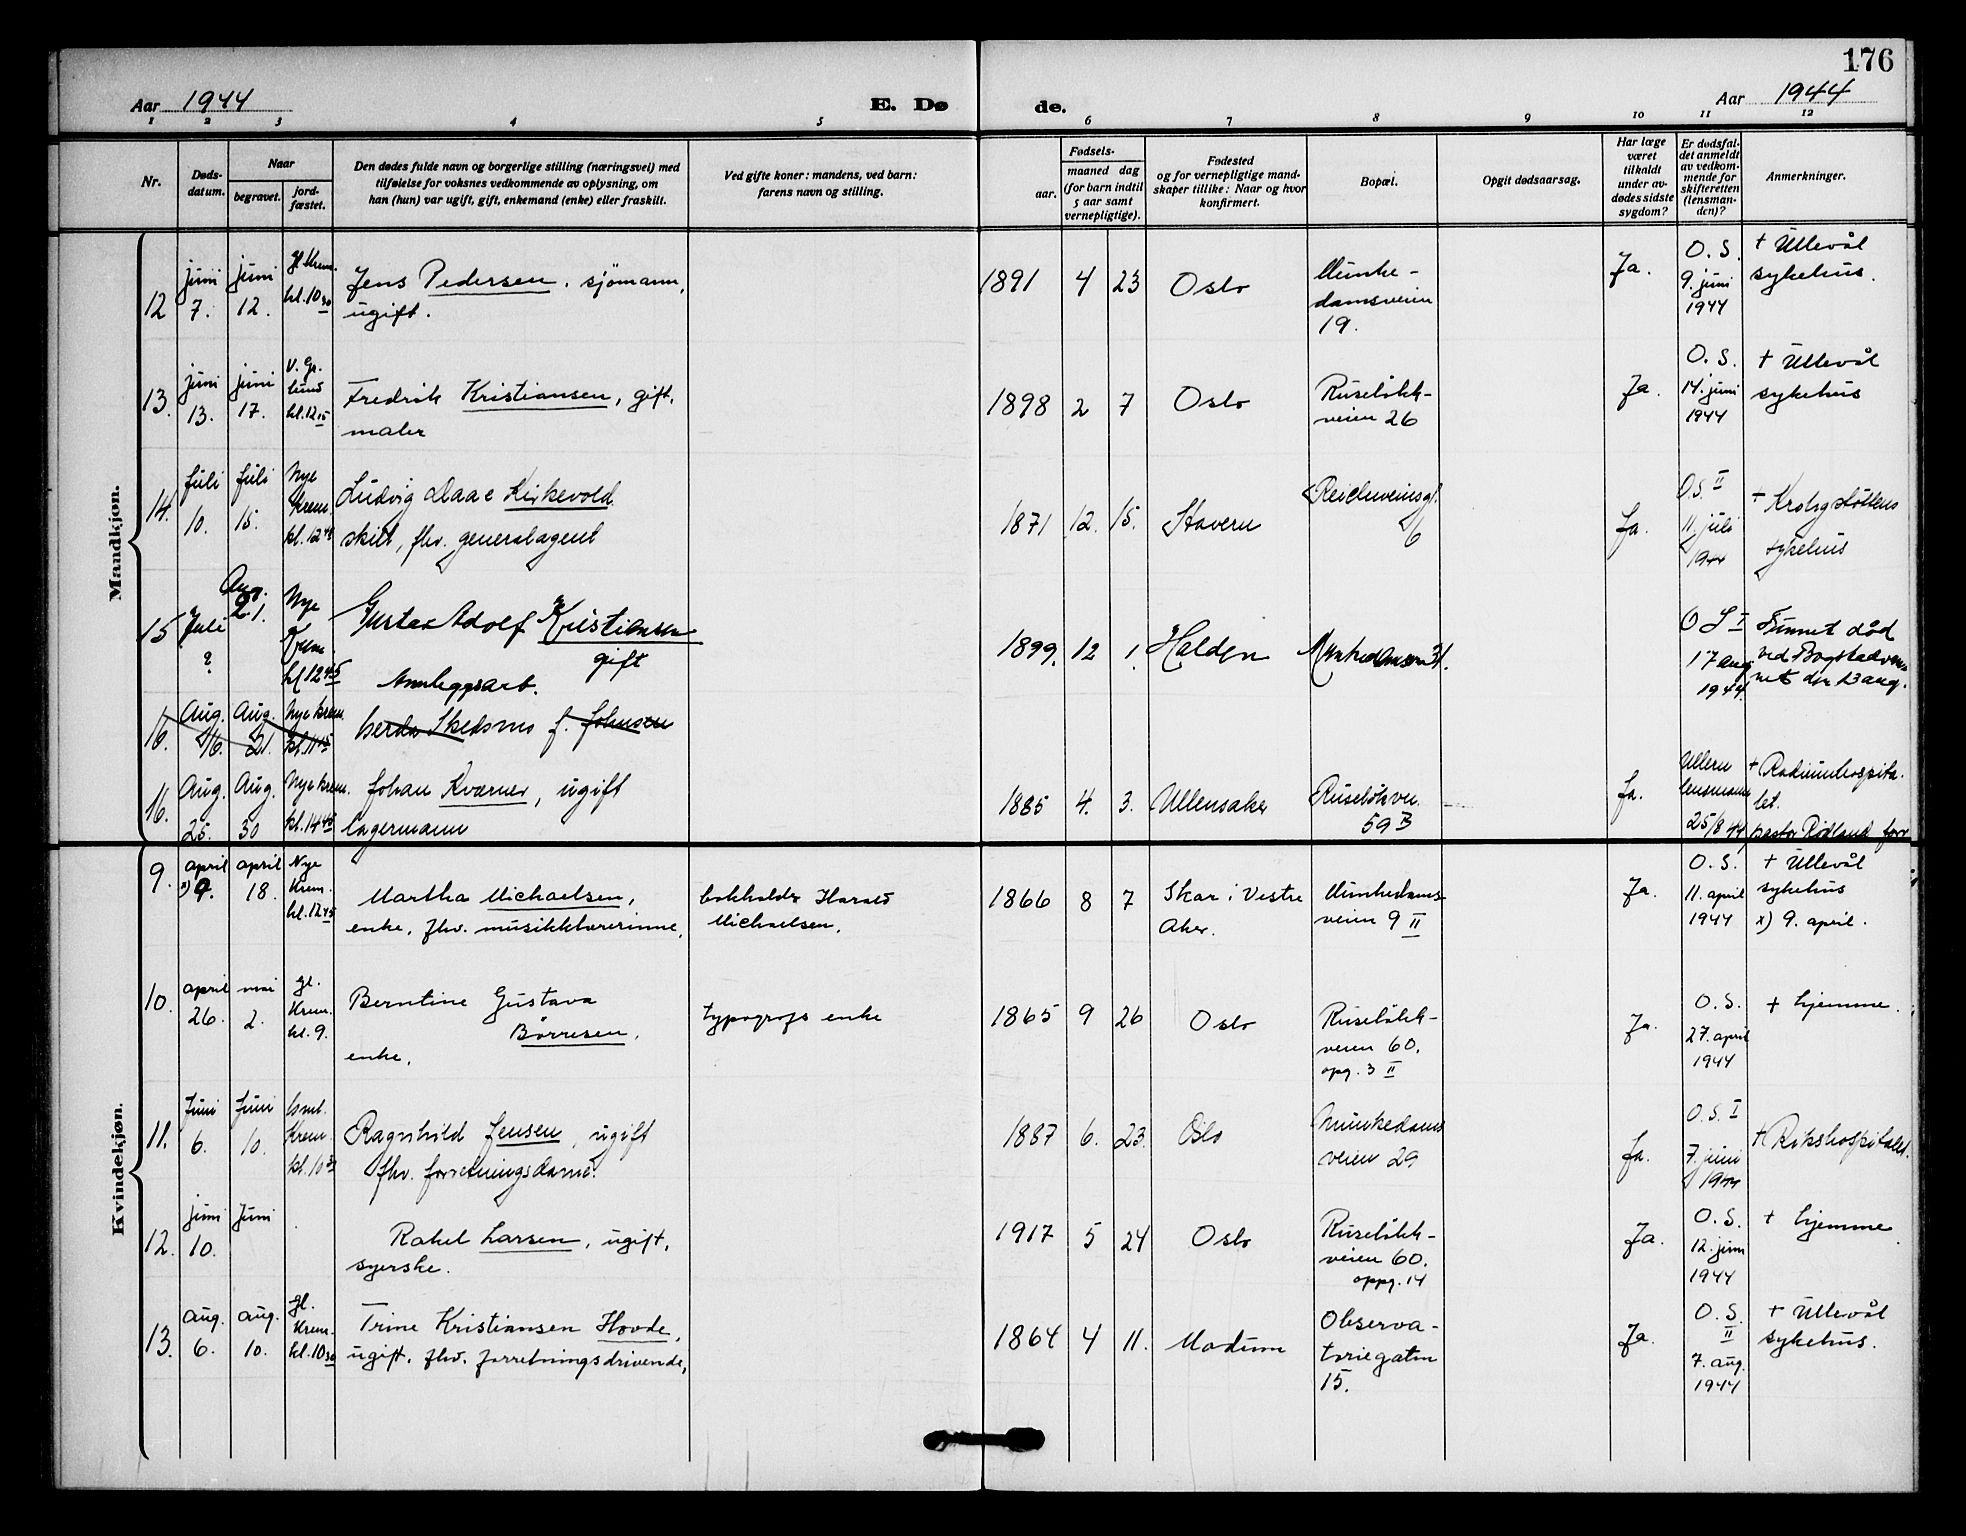 176
Aar 1944
E. Dø
de.
Aar 1944
1 2 3 4 5 6 7 8 9 10 11 12
Nr.
Døds-
datum.
Naar
begravet.
jord-
fæstet.
Den dødes fulde navn og borgerlige stilling (næringsvei) med
tilføielse for voksnes vedkommende av oplysning, om
han (hun) var ugift, gift, enkemand (enke) eller fraskilt.
Ved gifte koner: mandens, ved barn:
farens navn og stilling.
Fødsels-
aar.
maaned dag
(for barn indtil
5 aar samt
vernepligtige).
Fødested
og for vernepligtige mand-
skaper tillike: Naar og hvor
konfirmert.
Bopæl.
Opgit dødsaarsag.
Har læge
været
tilkaldt
under av-
dødes sidste
sygdom?
Er dødsfal-
det anmeldt
av vedkom-
mende for
skifteretten
(lensman-
den)?
Anmerkninger.
Mandkjøn.
12
juni
7.
juni
12.
Gl. Krem.
kl. 10 30
Jens Pedersen, sjömann,
ugift.
1891 4 23
Oslo
Munke-
damsveien
19.
Ja.
O. S.
9. juni
1944
+ Ullevål
sykehus.
13.
juni
13.
juni
17.
V. Gr.
lund
kl. 12 15
Fredrik Kristiansen, gift,
maler
1898 2 7
Oslo
Ruseløkk-
veien 26
Ja.
O. S.
14. juni
1944
+ Ullevål
sykehus
14.
Juli
10.
Juli
15.
Nye
Krem.
kl. 12 45
Ludvig Daae Kirkevold
skilt, fhv. generalagent
1871 12. 15.
Stavern
Reichweinsgt.
6
Ja.
O.S. II
11. juli
1944
+ Krohgstøttens
sykehus
15
Juli
?
Aug.
21.
Nye
Krem
kl 12 45
Gustav Adolf Kristiansen
gift
Anleggsarb.
1899. 12 1.
Halden
O S I
17 aug
1944.
Funnet død
ved Bogstadvan-
net den 13 aug.
16.
Aug.
16.
Aug.
21.
Nye krem.
kl. 11 15
Gerda Skedsmo f. Johnsen
16.
Aug.
25.
Aug.
30
Nye krem.
kl. 14 45
Johan Kværner, ugift
lagermann
1885 4. 3.
Ullensaker
Ruseløkvn.
59 B
Ja.
Ullern
lensmann
25/8 44
+ Radiumhospita-
let.
pastor Rødland forr
Kvindekjøn.
9.
april
x) 9.
april
18.
Nye
Krem.
kl. 12 45
Martha Michaelsen,
enke, fhv. musikklærerinne,
bokholder Harald
Michaelsen.
1866 8 7
Skar i Vestre
Aker.
Munkedams-
veien 9 II
Ja.
O. S.
11. april
1944
+ Ullevål
sykehus
x) 9. april.
10.
april
26.
mai
2.
Gl.
Krem.
kl. 9.
Berntine Gustava
Börresen,
enke,
typografs enke
1865 9 26
Oslo
Ruseløkk-
veien 60.
opg. 3 II
Ja.
O. S.
27. april
1944
+ hjemme.
11.
Juni
6.
Juni
10.
Gml.
Krem.
kl. 10 30
Ragnhild Jensen, ugift
fhv. forretningsdame.
1887 6. 23.
Oslo
Munkedams
veien 29
Ja.
O. S. I
7. juni
1944
+ Rikshospitalet.
12.
juni
10.
Juni
Rakel Larsen, ugift,
syerske.
1917 5 24
Oslo
Ruseløkk-
veien 60.
oppg. 14
Ja.
O. S.
12. juni
1944
+ hjemme
13.
aug.
6.
aug.
10.
Gl.
Krem.
kl. 10 30
Trine Kristiansen Hovde,
ugift. fhv. forretningsdrivende,
1864 4 11.
Modum
Observa-
toriegaten
15.
Ja.
O. S.
II
7. aug.
1944
+ Ullevål
sykehus.